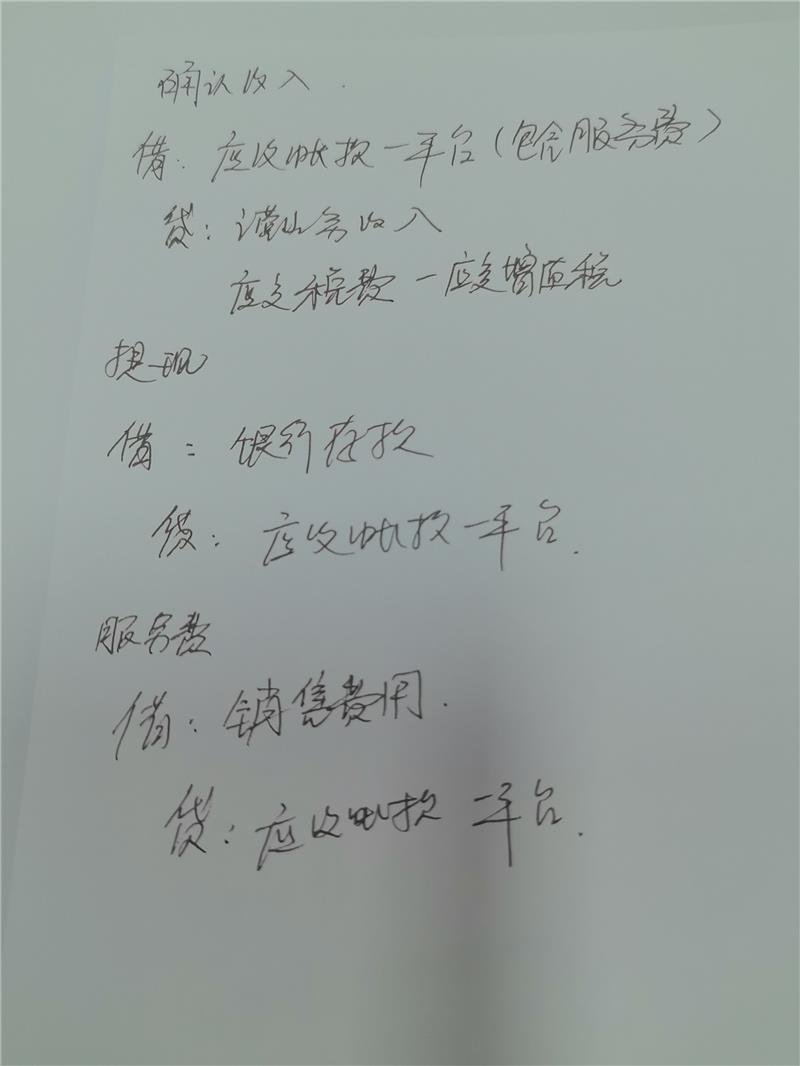 确认收入.
借: 应收帐款一平台(包含服务费)
贷: 营业务收入
应交税费一应交增值税
提现
借: 银行存款
贷: 应收帐款一平台.
服务费
借: 销售费用.
贷: 应收帐款一平台.